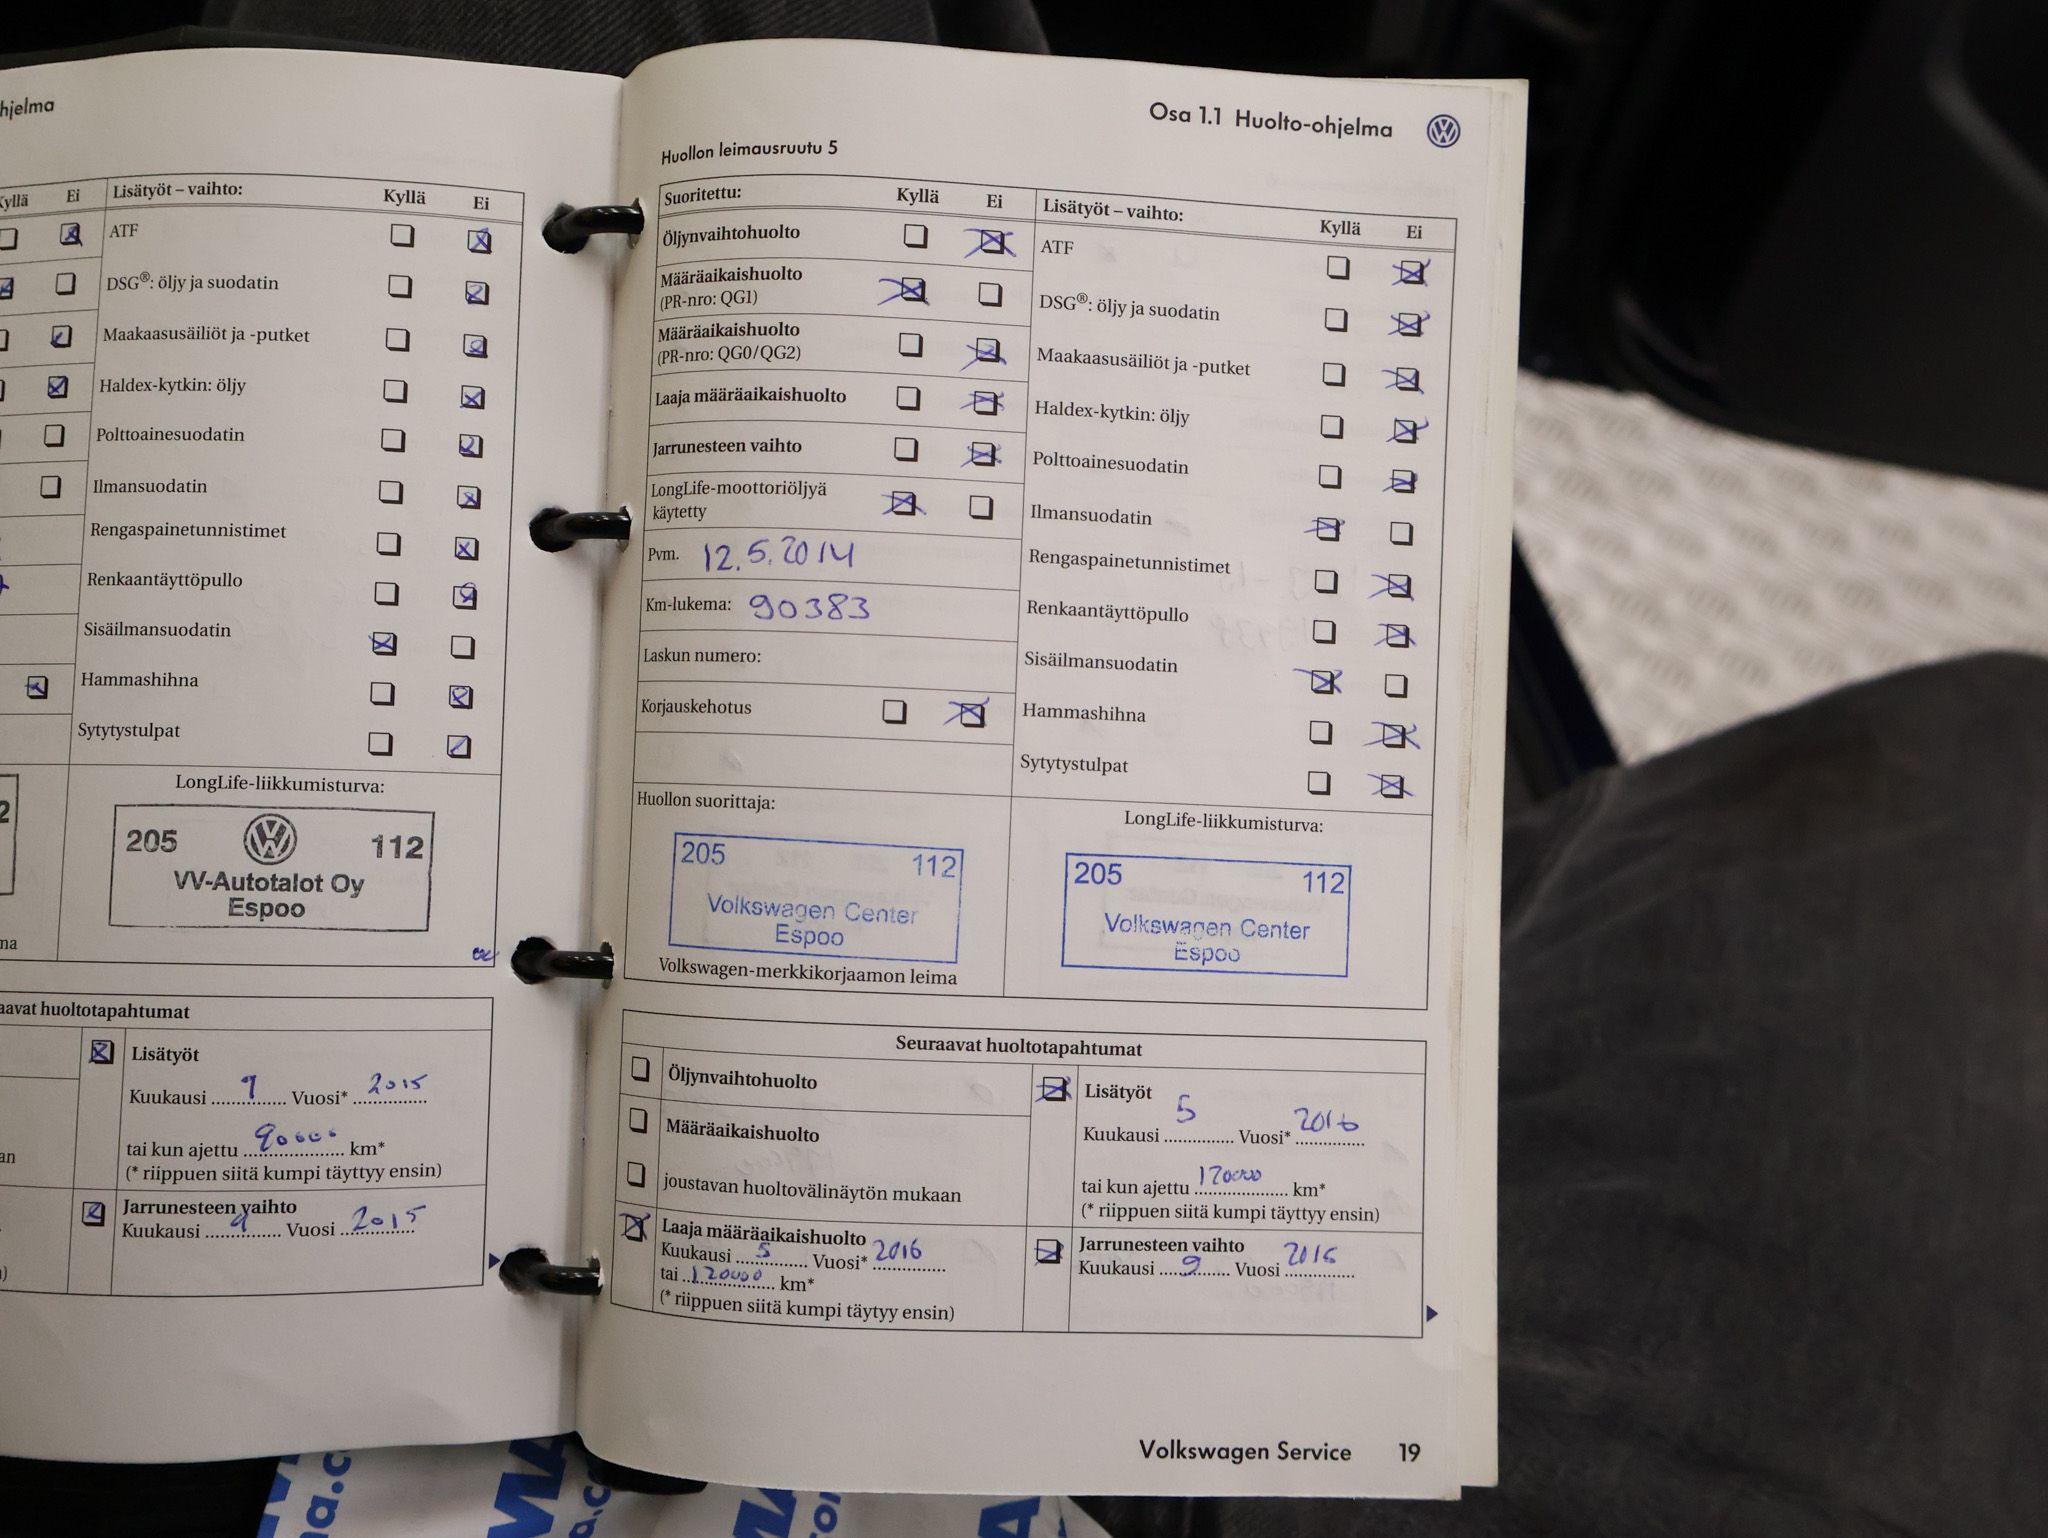 hjelma
Kyllä Ei
Lisätyöt – vaihto: Kyllä Ei
ATF
DSG®: öljy ja suodatin
Maakaasusäiliöt ja -putket
Haldex-kytkin: öljy
Polttoainesuodatin
Ilmansuodatin
Rengaspainetunnistimet
Renkaantäyttöpullo
Sisäilmansuodatin
Hammashihna
Sytytystulpat
LongLife-liikkumisturva:
205 112
VV-Autotalot Oy
Espoo
aavat huoltotapahtumat
Lisätyöt
Kuukausi 9 Vuosi* 2015
tai kun ajettu 90000 km*
(* riippuen siitä kumpi täyttyy ensin)
Jarrunesteen vaihto
Kuukausi 9 Vuosi 2015
Osa 1.1 Huolto-ohjelma
Huollon leimausruutu 5
Suoritettu: Kyllä Ei
Öljynvaihtohuolto
Määräaikaishuolto
(PR-nro: QG1)
Määräaikaishuolto
(PR-nro: QG0/QG2)
Laaja määräaikaishuolto
Jarrunesteen vaihto
LongLife-moottoriöljyä
käytetty
Pvm. 12.5.2014
Km-lukema: 90383
Laskun numero:
Korjauskehotus
Lisätyöt – vaihto:
Kyllä Ei
ATF
DSG®: öljy ja suodatin
Maakaasusäiliöt ja -putket
Haldex-kytkin: öljy
Polttoainesuodatin
Ilmansuodatin
Rengaspainetunnistimet
Renkaantäyttöpullo
Sisäilmansuodatin
Hammashihna
Sytytystulpat
Huollon suorittaja:
205 112
Volkswagen Center
Espoo
Volkswagen-merkkikorjaamon leima
LongLife-liikkumisturva:
205 112
Volkswagen Center
Espoo
Seuraavat huoltotapahtumat
Öljynvaihtohuolto
Määräaikaishuolto
joustavan huoltovälinäytön mukaan
Laaja määräaikaishuolto
Kuukausi 5 Vuosi* 2016
tai 120000 km*
(* riippuen siitä kumpi täytyy ensin)
Lisätyöt
Kuukausi 5 Vuosi* 2016
tai kun ajettu 120000 km*
(* riippuen siitä kumpi täyttyy ensin)
Jarrunesteen vaihto
Kuukausi 9 Vuosi 2015
Volkswagen Service 19